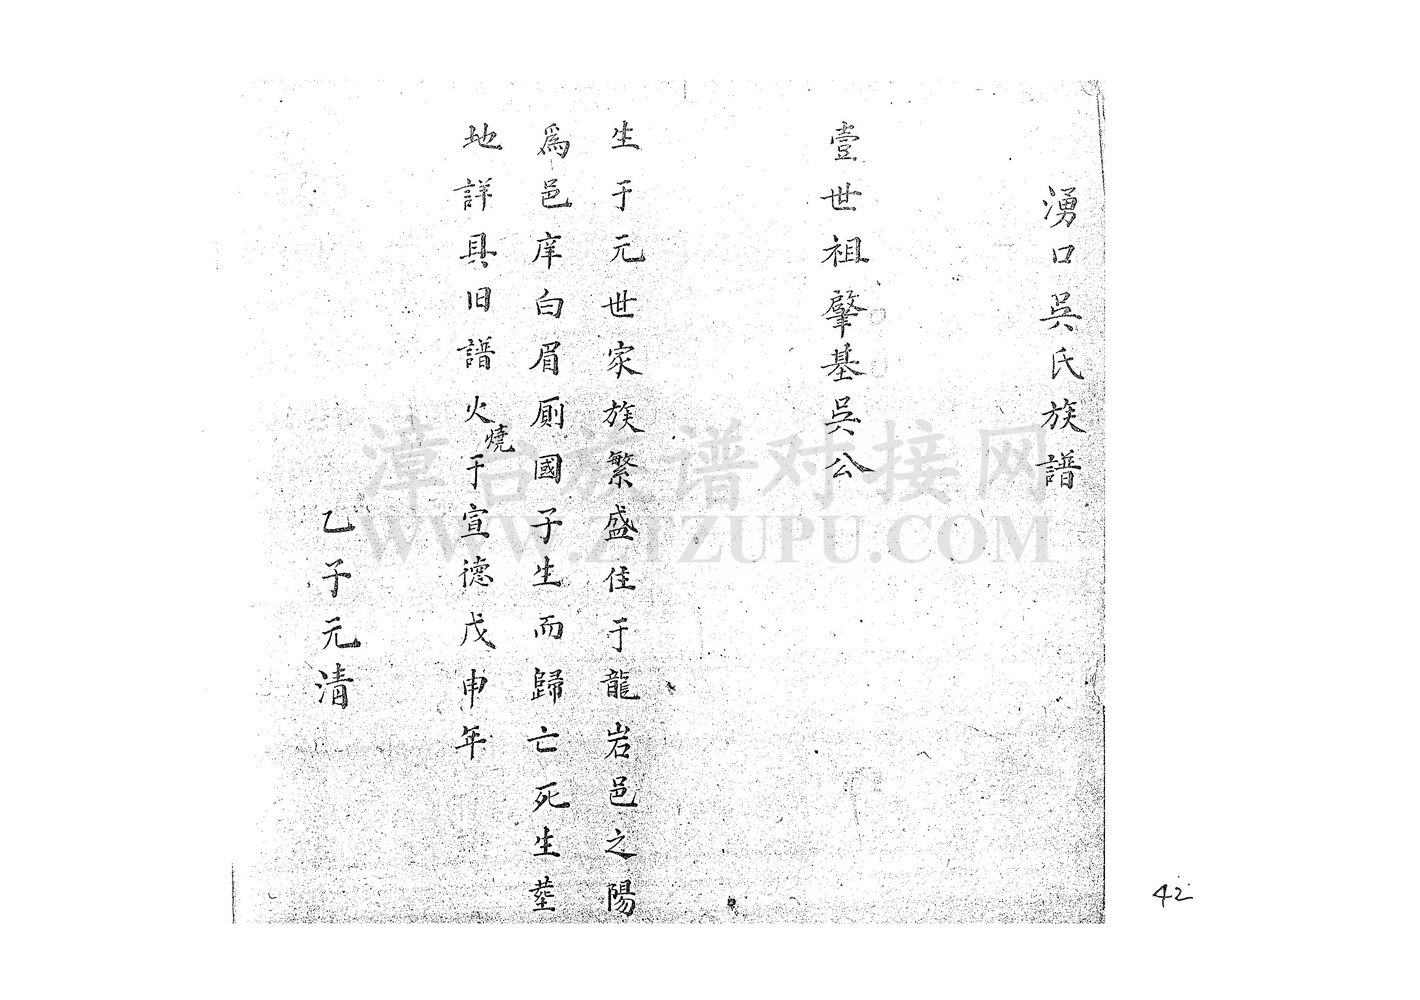 湧口吳氏族譜
壹世祖肇基吳公
生于元世家族繁盛住于龍岩邑之陽
為邑庠白眉厠國子生而歸亡死生塟
地詳具旧譜火燒于宣德戊申年
乙子元清
漳台族谱对接网
WWW.ZTZUPU.COM
42